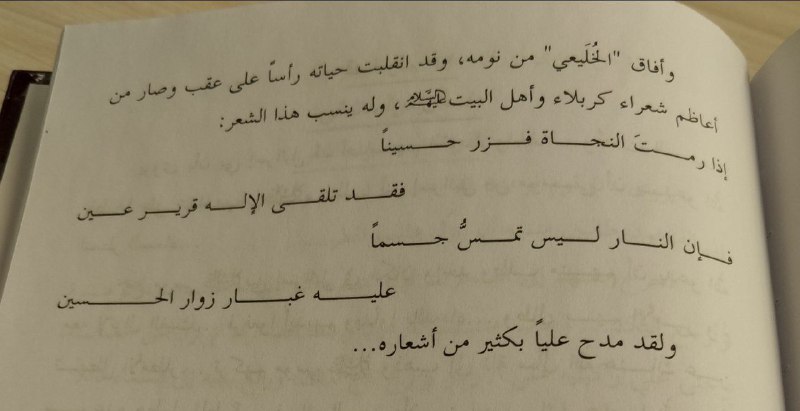 وأفاق "الخُلَيعي" من نومه، وقد انقلبت حياته رأساً على عقب وصار من
أعاظم شعراء كربلاء وأهل البيت عليهم السلام، وله ينسب هذا الشعر:
إذا رمـتَ النجـاة فـزر حـسيناً
فقـد تلقـى الإلـه قريـر عـين
فـإن النـار لـيس تمـسُّ جـسماً
عليـه غبـار زوار الحـسين
ولقد مدح علياً بكثير من أشعاره...